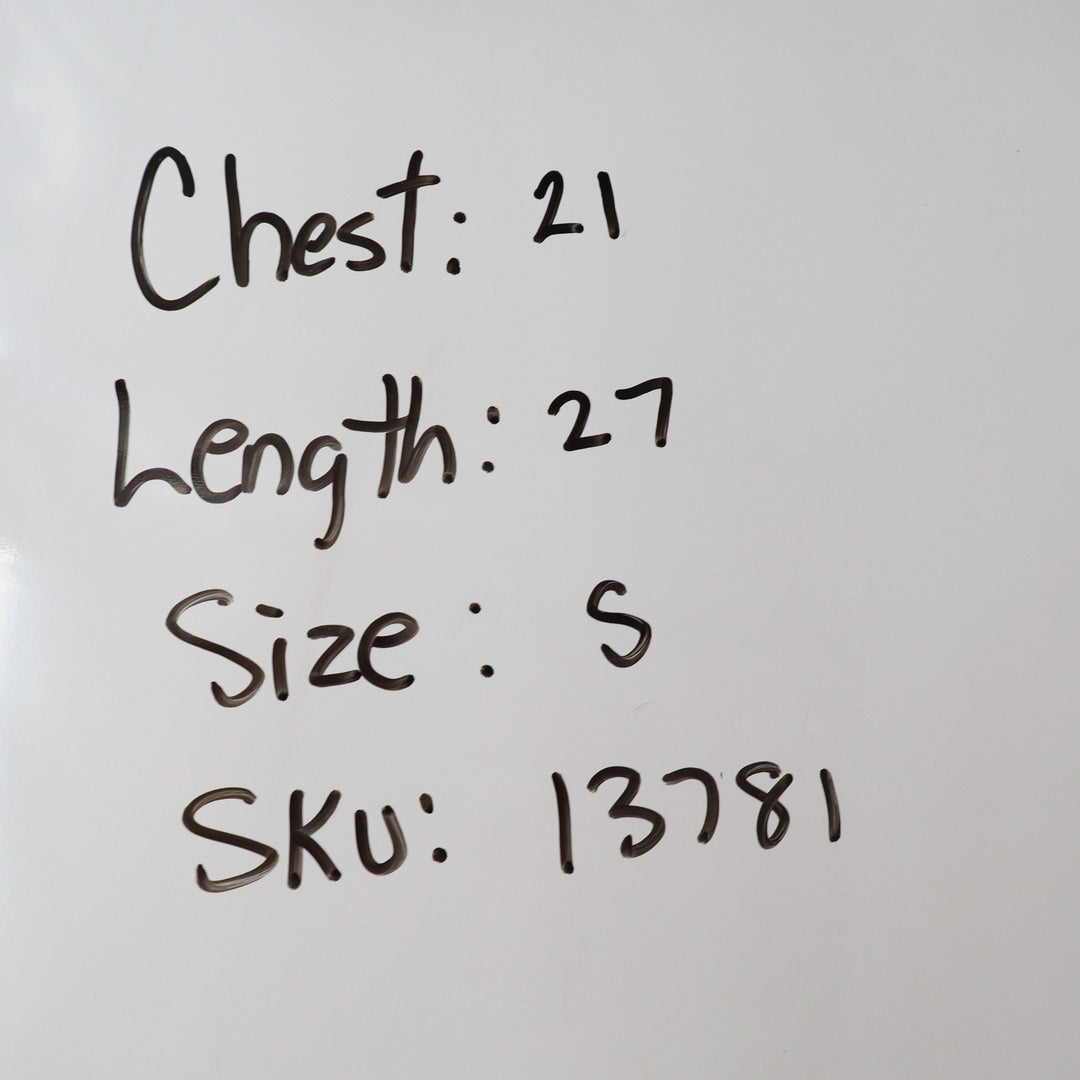 Chest: 21
Length: 27
Size: S
SKU: 13781